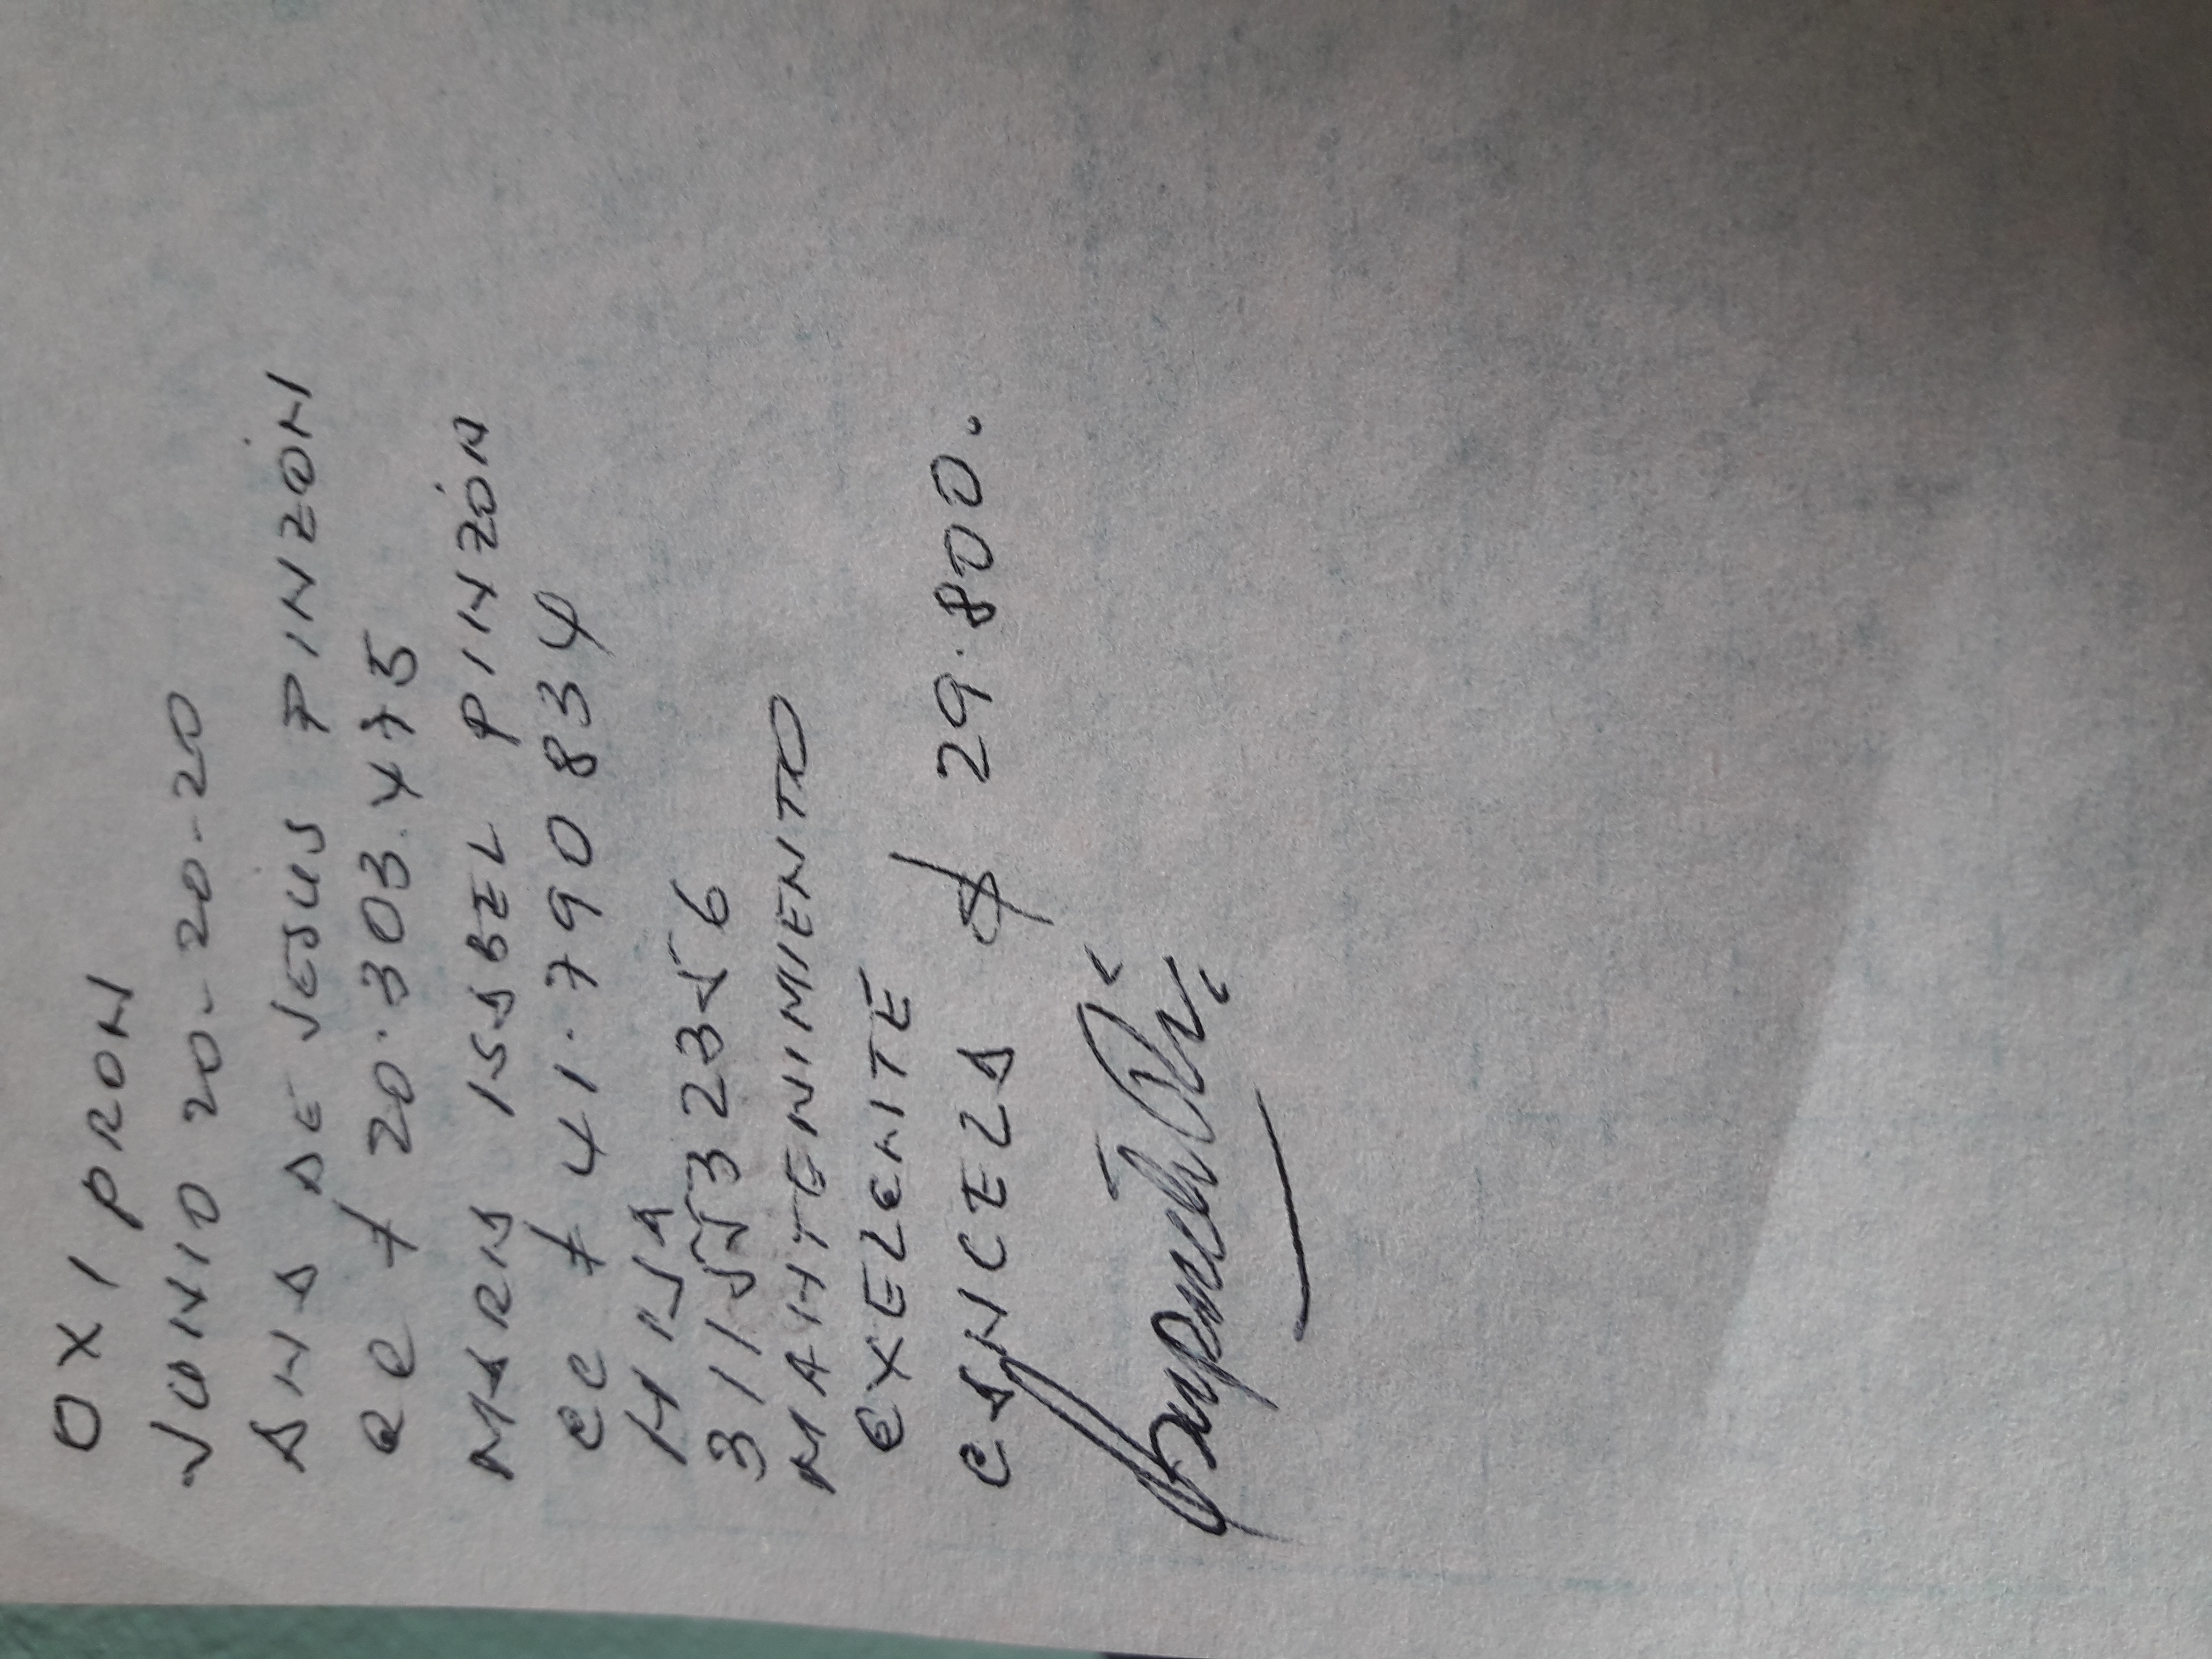 OXIPRON
JUNIO 20-20-20-20
ANA DE JESUS PINZÓN
CC # 20.303.475
MARIA ISABEL PINZÓN
CC # 41.790834
HIJA
3115532356
MANTENIMIENTO
EXELENTE
CANCELA $ 29.800.